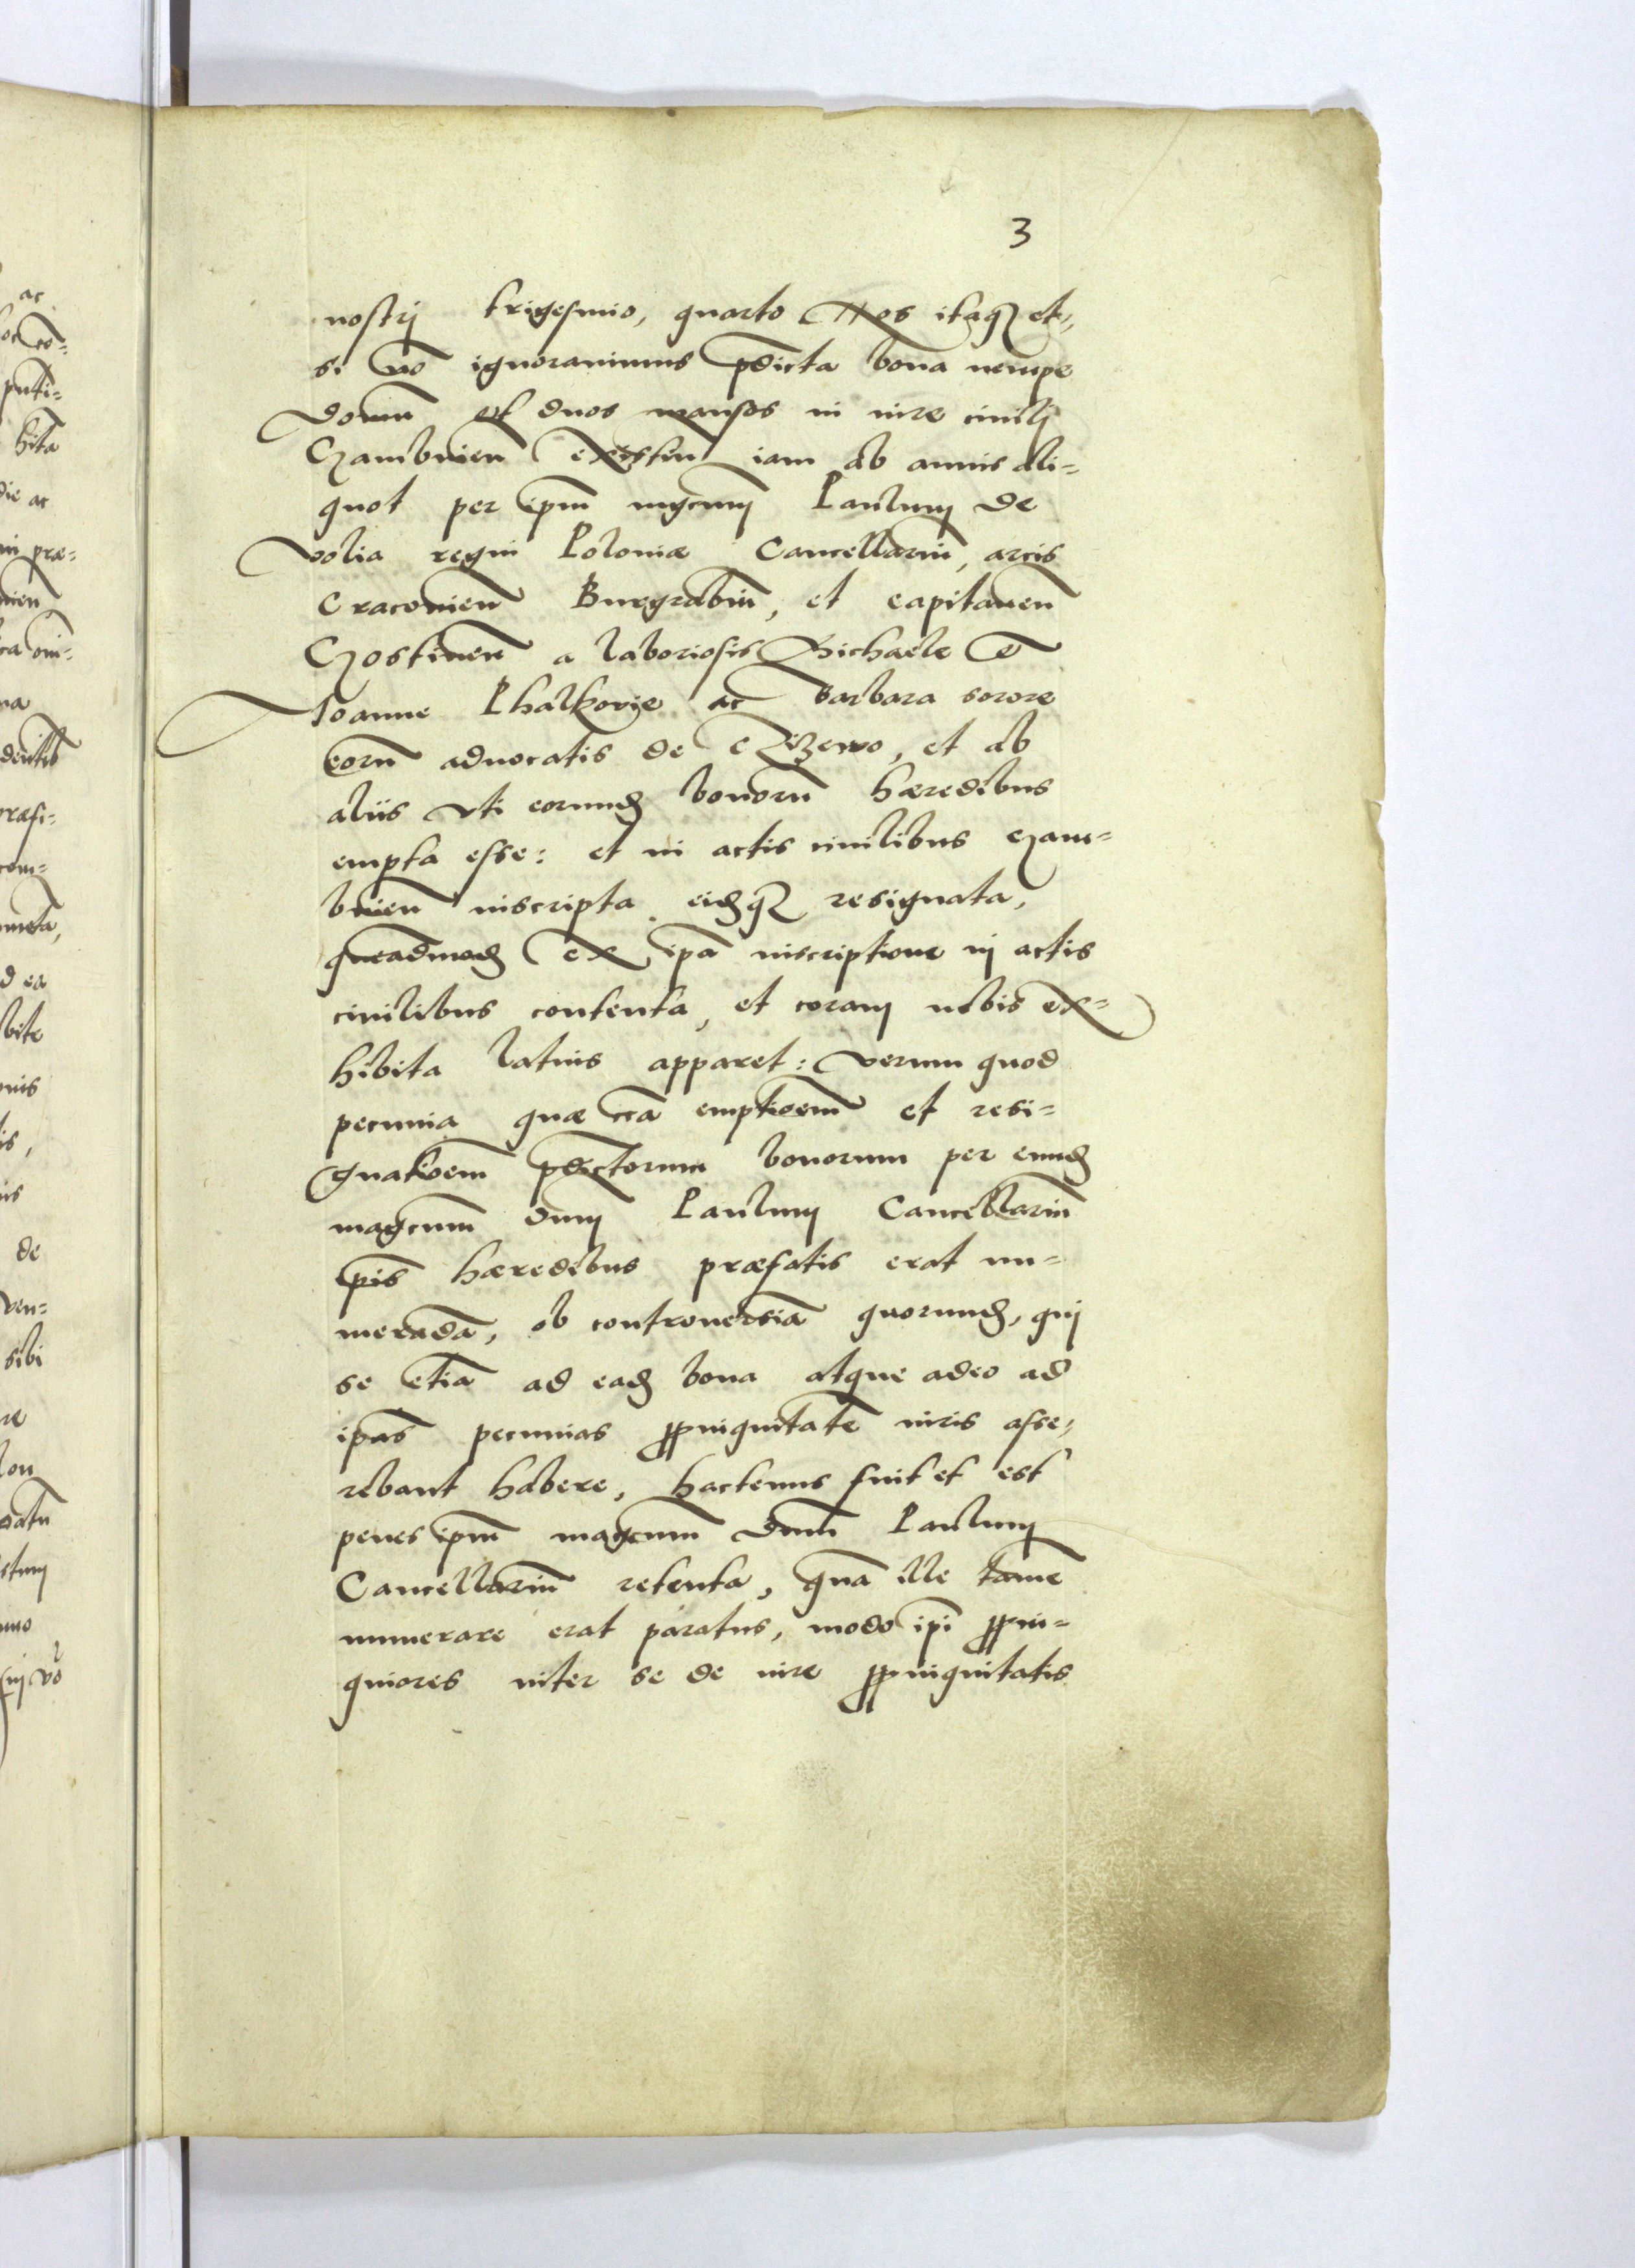 3
nostrj trigesimo, quarto Nos itaq₃ et,,
si nō ignoramus p̄dicta bona nempe
domū et duos mansos in iure ciuilj
Czambuień existeñ iam ab annis ali=
quot per ip̄m mgcum Paulum de
volia regni Poloniæ Cancellariū, arcis
Cracouieñ Burgrabiū, et capitaneū
Gostineñ a laboriosis Michaele et
Joanne Phalkovie ac Barbara sorore
eorū aduocatis de Czizewo, et ab
aliis vti eorund̄ bonorū hæredibus
empta esse: et in actis ciuilibus czam=
buień inscripta eid̄q₃ resignata,
queadmod̄ ex ip̄a inscriptione in actis
ciuilibus contenta, et coram nobis ex=
hibita latius apparet: verum quod
pecunia quæ c̄ca emptioem̄ et resi=
gnatioem̄ p̄dictorum bonorum per eund̄
magcum dnm̄ Paulum Cancellariū
ip̄is hæredibus præfatis erat nu=
meradā, ob controuersiā quorund̄, qui
se etiā ad ead̄ bona atque adeo ad
ip̄as pecunias ꝓpinquitatē iuris asse,,
rebant habere, hactenus fuit et est
penes ip̄m magcum dnm̄ Paulum
Cancellariū retenta, quā ille tamē
numerare erat paratus, modo ip̄i ꝓpin=
quiores inter se de iure ꝓpinquitatis